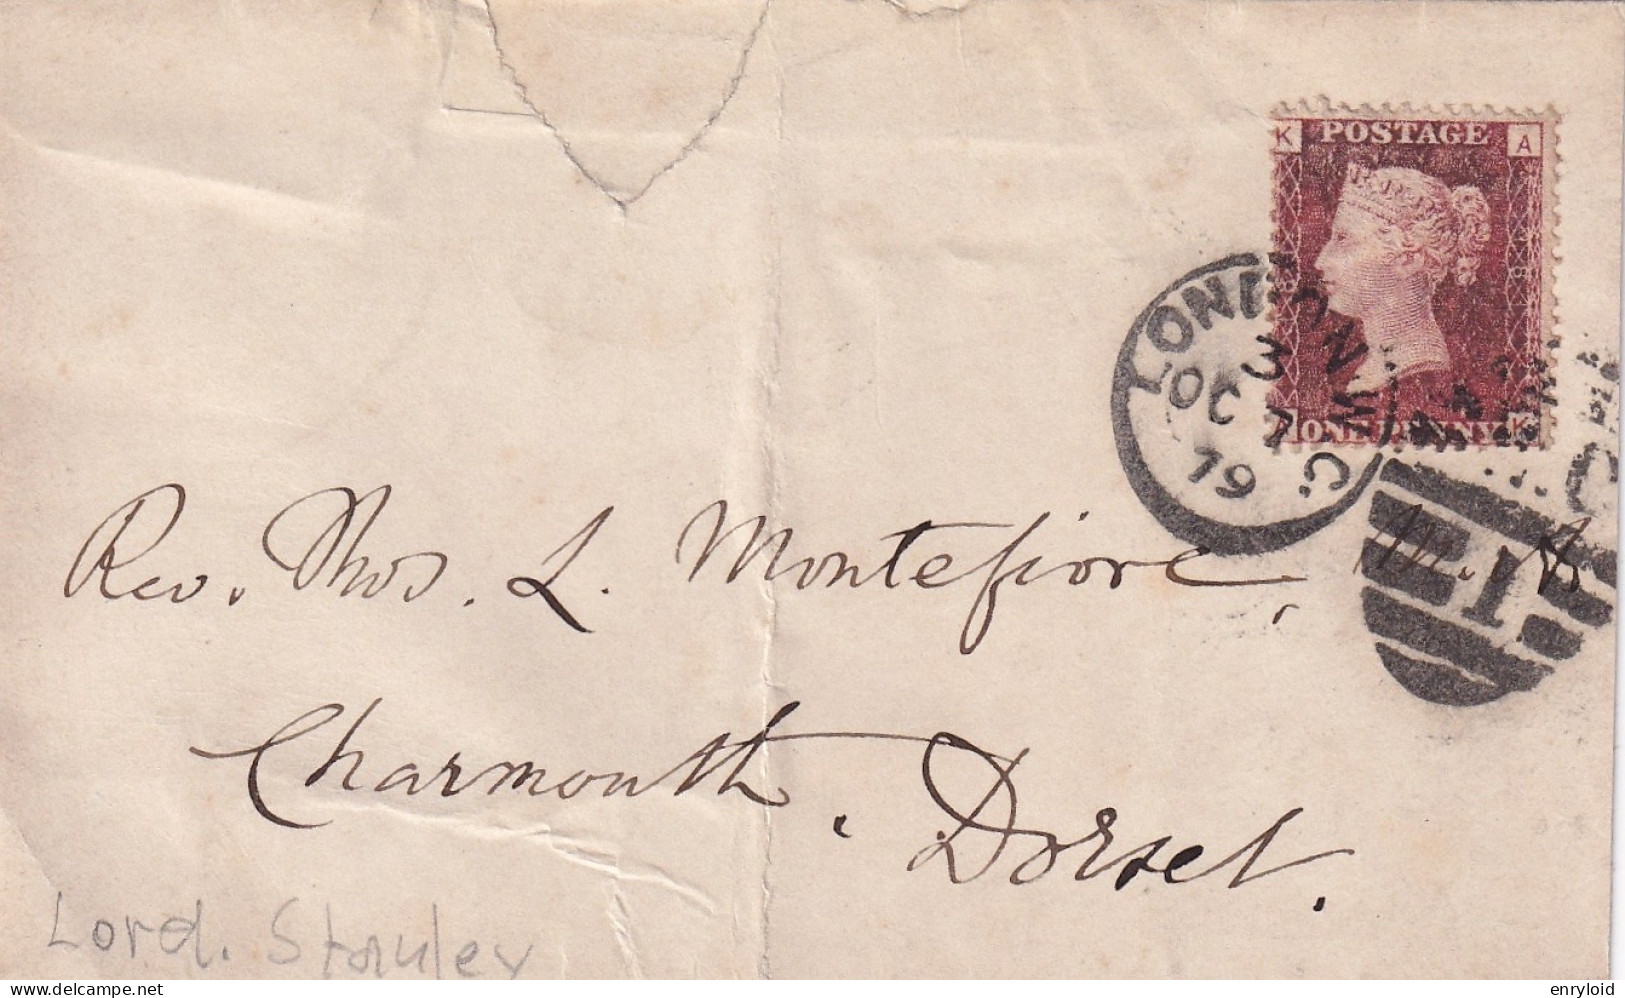 K POSTAGE A
ONE PENNY K
LONDON W.C.
3
OC 7
79
Rev. Thos. L. Montefiore, M.A.
Charmouth.
Dorset.
Lord. Stanley
delcampe.net
enryloid